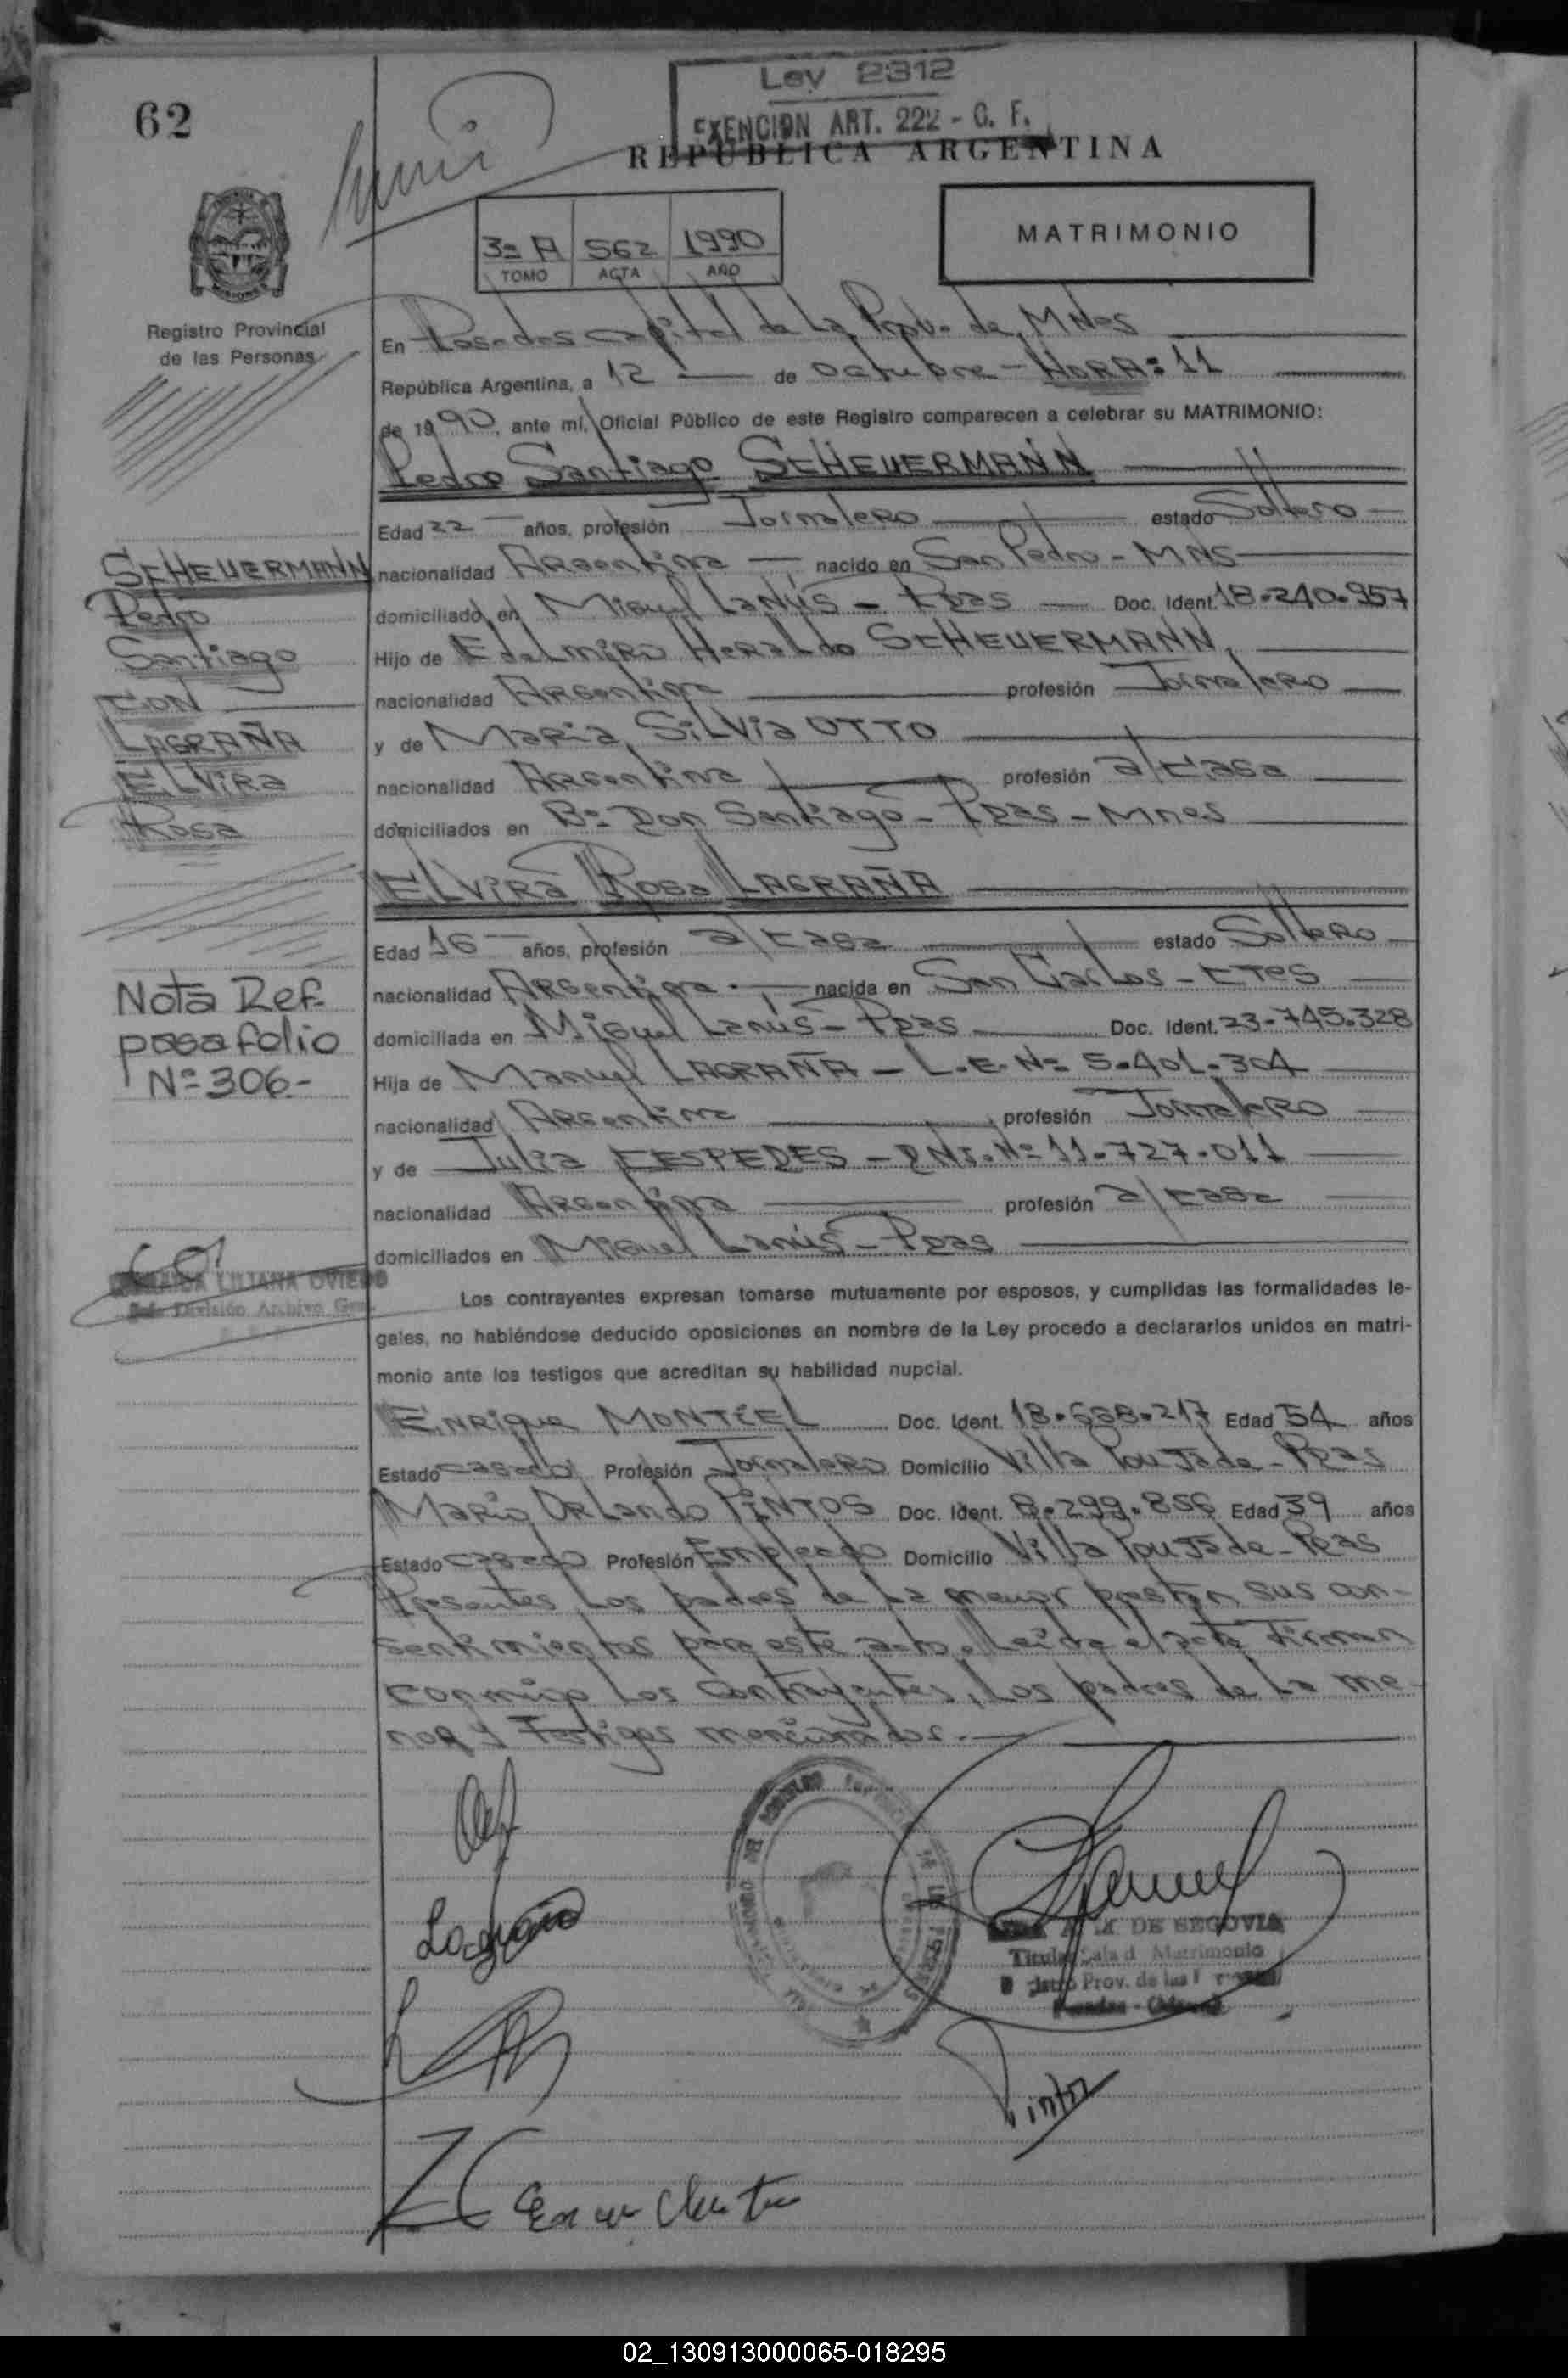 62
Ley 2312
EXENCION ART. 222 - C. F.
REPUBLICA ARGENTINA
3ª A 562 1990
TOMO ACTA AÑO
MATRIMONIO
Registro Provincial
de las Personas
En Posadas capital de La Prov. de MNes
República Argentina, a 12 de octubre - HORA: 11
de 1990, ante mí, Oficial Público de este Registro comparecen a celebrar su MATRIMONIO:
Pedro Santiago SCHEUERMANN
Edad 22 años, profesión Jornalero estado Soltero
nacionalidad Argentina nacido en San Pedro - MNS
domiciliado en Miguel Lanús - Pdas Doc. Ident. 18.240.957
Hijo de Edelmiro Heraldo SCHEUERMANN
nacionalidad Argentina profesión Jornalero
y de Maria Silvia OTTO
nacionalidad Argentina profesión a/casa
domiciliados en Bº Don Santiago - Pdas - Mnes
SCHEUERMANN
Pedro
Santiago
CON
LAGRAÑA
ELVira
Rosa
ELVira Rosa LAGRAÑA
Edad 16 años, profesión a/casa estado Soltero
nacionalidad Argentina nacida en San Carlos - CTES
domiciliada en Miguel Lanús - Pdas Doc. Ident. 23-745.328
Hija de Manuel LAGRAÑA - L.E. Nº 5.401.304
nacionalidad Argentina profesión Jornalero
y de Julia CESPEDES - DNI. Nº 11.727.011
nacionalidad Argentina profesión a/casa
domiciliados en Miguel Lanús - Pdas
Nota Ref.
pasa folio
Nº 306.-
LILIANA OVIEDO
Jefe División Archivo Gral.
Los contrayentes expresan tomarse mutuamente por esposos, y cumplidas las formalidades le-
gales, no habiéndose deducido oposiciones en nombre de la Ley procedo a declararlos unidos en matri-
monio ante los testigos que acreditan su habilidad nupcial.
Enrique MONTIEL Doc. Ident. Edad 54 años
Estado casado Profesión Jornalero Domicilio Villa Poujade - Pdas
Mario Orlando PINTOS Doc. Ident. 8.299.856 Edad 39 años
Estado casado Profesión Empleado Domicilio Villa Poujade - Pdas
Presentes los padres de la menor prestan sus con-
sentimientos para este acto. Leida el acta firman
conmigo los contrayentes, los padres de la me-
nor y Testigos mencionados.-
Lagraña
DE SEGOVIA
Titular Sala d Matrimonio
Prov. de las
Pinto
02_130913000065-018295